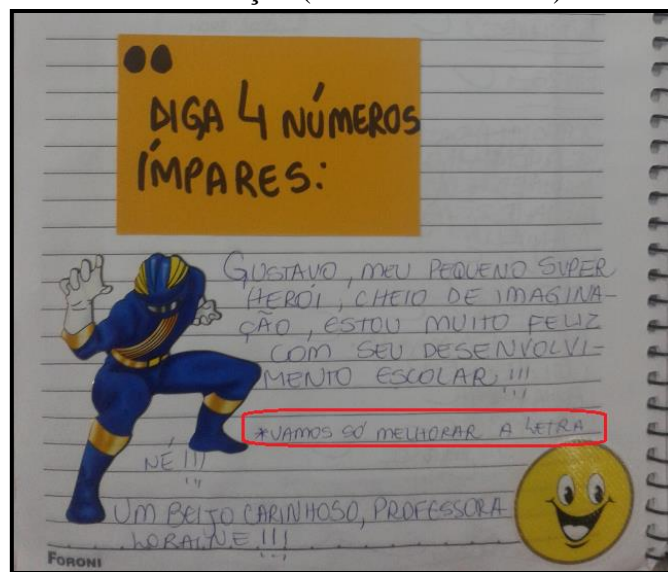 DIGA 4 NÚMEROS
ÍMPARES:
GUSTAVO, MEU PEQUENO SUPER
HERÓI, CHEIO DE IMAGINA-
ÇÃO, ESTOU MUITO FELIZ
COM SEU DESENVOLVI-
MENTO ESCOLAR!!!
*VAMOS SÓ MELHORAR A LETRA
NÉ!!!
UM BEIJO CARINHOSO, PROFESSORA
LORAINE!!!
FORONI